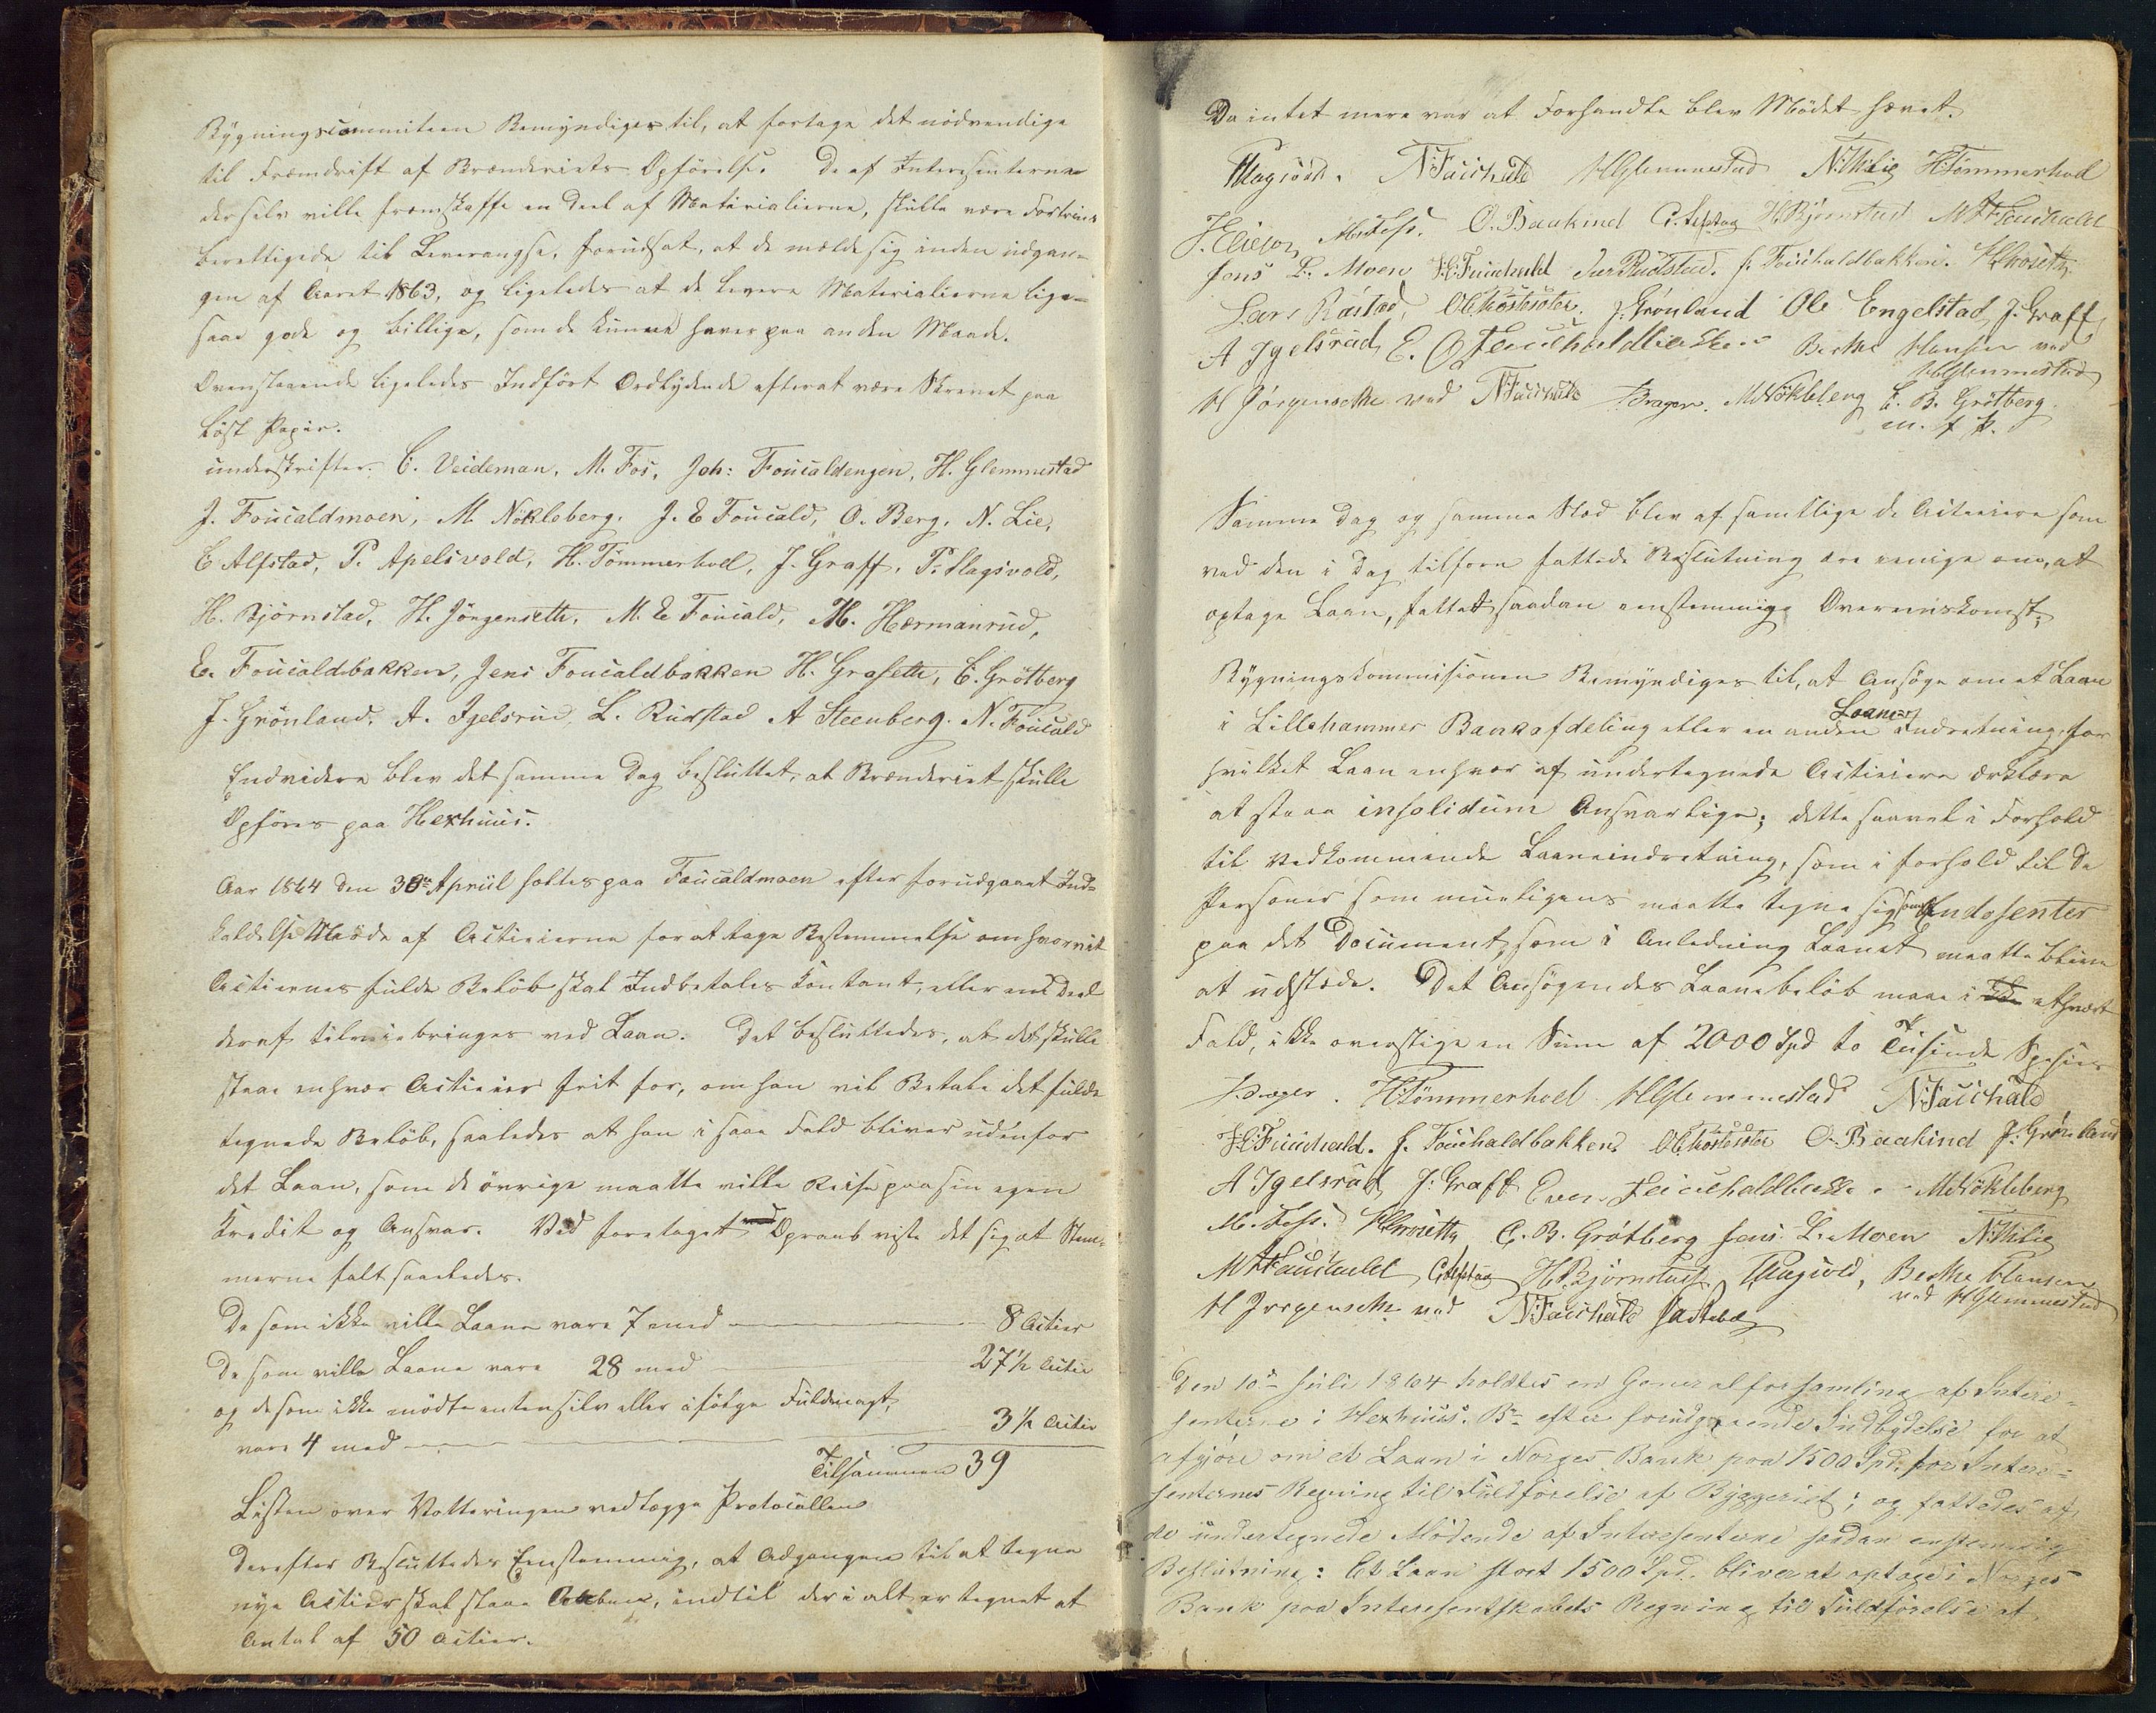 Bygningscommiteen Bemyndiges til, at fortage det nödvendige
til Fremdrift af Brænderiets Opförelse. De af Interesenterne
der selv ville fremskaffe en Deel af Materialierne, skulle være Fortrins
berettigede til Leverangse, forudsat, at de melde sig inden udgan-
gen af Aaret 1863, og ligeledes at de levere Materialierne lige-
saa gode og billige, som de kunne haves paa anden Maade.
Ovenstaaende ligeledes Indfört Ordlydende efterat være Skrevet paa
Löst Papir.
underskrifter. C. Veideman, M. Fos, Joh: Foucaldengen, H. Glemmestad
J. Foucaldmoen, M. Nökleberg, J. E Foucald, O. Berg, N. Lie,
C Alfstad, P. Apelsvold, H. Tömmerhoel, J. Graff, P. Flagsvold,
H. Björnstad, H. Jörgenseth, M. E Foucald, M. Hermanrud,
E. Foucaldbakken, Jens Foucaldbakken H. Graseth, C. Grötberg
J. Grönland, A. Igelsrud, L. Rudstad A Steenberg. N. Foucald
Endvidere blev det samme Dag besluttet, at Brænderiet skulle
Opföres paa Hexhuus.
Aar 1864 den 30te Apriil holtes paa Foucaldmoen efter forudgaaet Ind-
kaldelse Möde af Actieierne for at tage Bestemmelse om hvorvidt
Actiernes fulde Belöb skal Indbetales kontant, eller en Deel
deraf tilveiebringes ved Laan. Det besluttedes, at det skulle
staae enhver Actieier frit for, om han vil Betale det fulde
tegnede Belöb, saaledes at han i saa Fald bliver udenfor
det Laan, som de övrige maatte ville Reise paa sin egen
Kredit og Ansvar. Ved foretaget Opraab viste det sig at Stem-
merne falt saaledes.
De som ikke ville Laane vare 7 med 8 Actier
De som ville Laane vare 28 med 27 1/2 Actie
og de som ikke mödte enten selv eller ifölge Fuldmagt,
vare 4 med 3 1/2 Actie
Tilsammen 39
Listen over Votteringen vedlægge Protocollen
Derefter Besluttedes Eenstemmig, at Adgangen til at tegne
nye Actier skal staae Aaben, indtil der i alt er tegnet et
Antal af 50 Actier.
Da intet mere var at Forhandle blev Mödet hævet.
Flagsvold. N. Fauchald HGlemmestad N. Lie HTömmerhoel
J. Eliesen M. Fos. O. Baakind C. Alfstag H. Bjørnstad M Fauchald
Jens L. Moen H. Fauchald Lars Rudstad. J. Fouchaldbakken.
Lars Røstad, J. Grönland Ole Engelstad, J. Graff
A Igelsrud, E. Fouchaldbakken Berthe Hansen ved
HGlemmestad
H Jörgenseth ved N. Fauchald Brager. M. Nökleberg C. B. Grötberg
m. f. P.
Samme Dag og samme Sted blev af samtlige de Actieiere som
ved den i Dag tilforn fattede Beslutning ere enige om, at
optage Laan, fattet saadan eenstemmige Overeenskomst;
Bygningskommisionen Bemyndiges til, at Ansöge om et Laan
i Lillehammer Bankafdeling eller en anden Laane Indretning, for
hvilket Laan enhver af undertegnede Actieiere erklære
at staae insolidum Ansvarlige; dette saavel i Forhold
til Vedkommende Laaneindretning, som i forhold til De
Personer som mueligens maatte tegne sig som Endosenter
paa det Document, som i Anledning Laanet maatte blive
at udstæde. Det Ansögendes Laanebelöb maae i ethvert
Fald, ikke overstige en Sum af 2000 Spd to Tusinde Spesier
Brager. HTömmerhoel HGlemmestad N. Fauchald
H. Fauchald. J. Fouchaldbakken O. Baakind J. Grönland
A Igelsrud, J. Graff Even Fouchaldbakken M. Nökleberg
M. Fos. C. B. Grötberg Jens L. Moen N. Lie
M Fauchald C. Alfstag H. Bjørnstad, Flagsvold, Berthe Hansen
ved HGlemmestad
H Jørgenseth ved N. Fauchald
Den 10de Juli 1864 holdtes en Generalforsamling af Intere-
senterne i Hexhuus Br. efter forudgaaende Indbydelse for at
afgjöre om et Laan i Norges Bank paa 1500 Spd. for Intere-
senternes Regning til Fuldförelse af Byggeriet; og fattedes af
de undertegnede Mödende af Interesenterne sadan enstemmig
Beslutning: Et Laan stort 1500 Spd. bliver at optage i Norges
Bank paa Interesentskabets Regning til Fuldförelse af